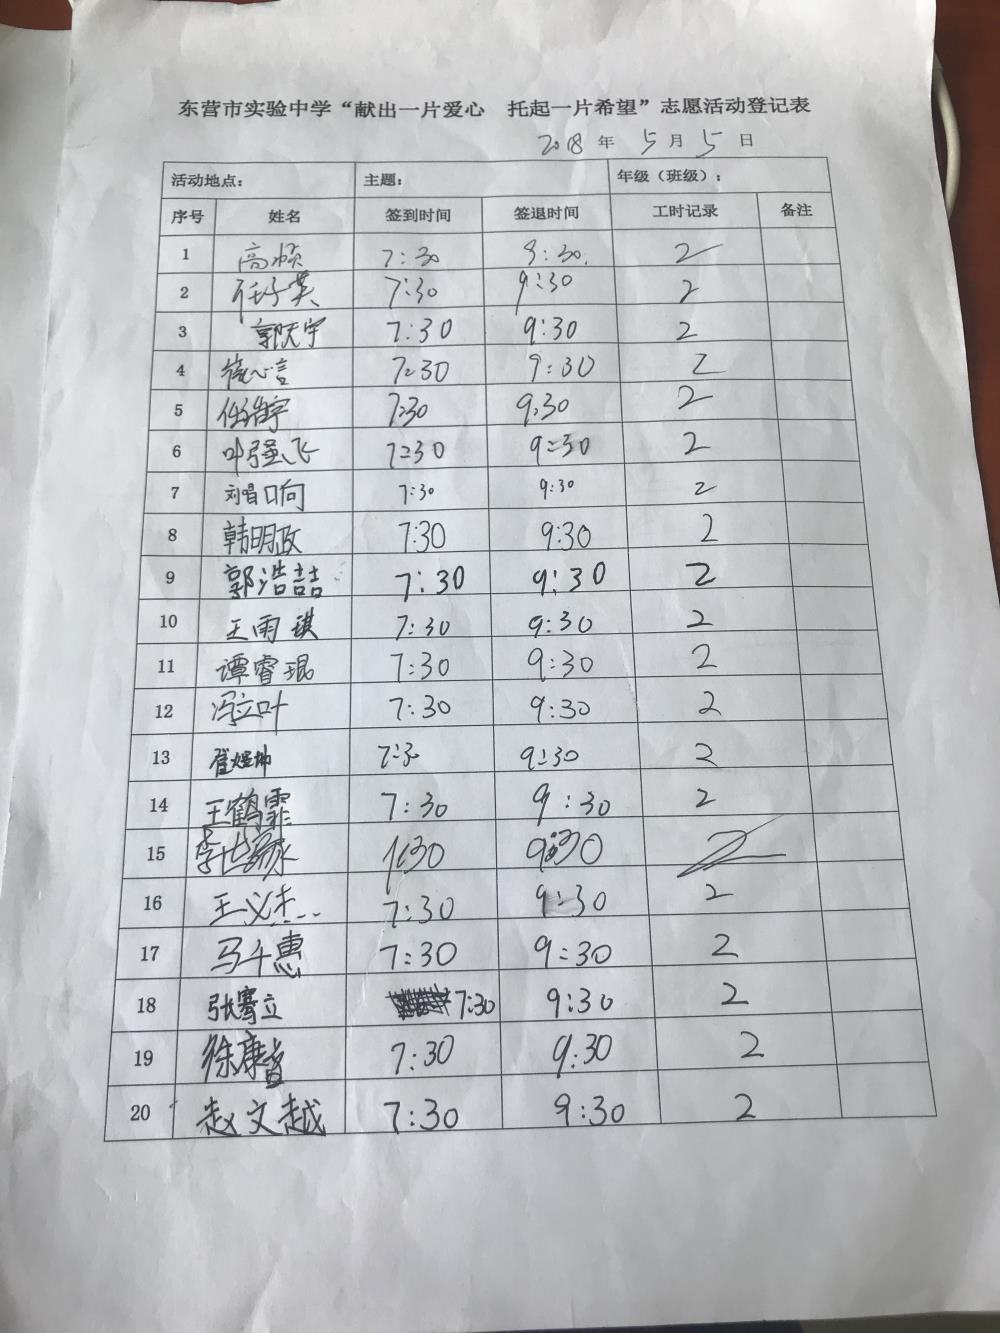 东营市实验中学“献出一片爱心 托起一片希望”志愿活动登记表
2018 年 5 月 5 日
活动地点: 主题: 年级（班级）:
序号 姓名 签到时间 签退时间 工时记录 备注
1 高 7:30 9:30. 2
2 任子英 7:30 9:30 2
3 郭天宇 7:30 9:30 2
4 心言 7:30 9:30 2
5 任 宇 7:30 9:30 2
6 叶强飞 7:30 9:30 2
7 刘唱晌 7:30 9:30 2
8 韩明政 7:30 9:30 2
9 郭浩喆 7:30 9:30 2
10 王雨琪 7:30 9:30 2
11 谭睿琨 7:30 9:30 2
12 冯立叶 7:30 9:30 2
13 7:30 9:30 2
14 王鹤霏 7:30 9:30 2
15 李 7:30 9:30 2
16 王义杰 7:30 9:30 2
17 马千惠 7:30 9:30 2
18 张骞立 7:30 9:30 2
19 徐康 7:30 9:30 2
20 赵文越 7:30 9:30 2